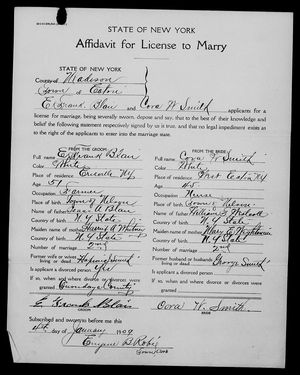 STATE OF NEW YORK
Affidavit for License to Marry
STATE OF NEW YORK
County of Madison
Town of Eaton
E. Frank Blair and Cora W Smith applicants for a
license for marriage, being severally sworn, depose and say, that to the best of their knowledge and
belief the following statement respectively signed by us is true, and that no legal impediment exists as
to the right of the applicants to enter into the marriage state.
FROM THE GROOM
Full name E. Frank Blair
Color White
Place of residence N.Y.
Age 51
Occupation Farmer
Place of birth Town of Nelson
Name of father Blair
Country of birth N.Y. State
Maiden name of mother Harriet A
Country of birth N.Y. State
Number of marriage 2nd
Former wife or wives living or dead Smith
Is applicant a divorced person Yes
If so, when and where divorce or divorces were granted
Onondaga County
E. Frank Blair
GROOM
FROM THE BRIDE
Full name Cora W Smith
Color White
Place of residence West Eaton N.Y.
Age 45
Occupation Nurse
Place of birth Town of Nelson
Name of father William
Country of birth N.Y. State
Maiden name of mother Mary E. Wightman
Country of birth N.Y. State
Number of marriage 2nd
Former husband or husbands living or dead George Smith
Is applicant a divorced person
If so, when and where divorce or divorces were granted
Cora W. Smith
BRIDE
Subscribed and sworn to before me this
4th day of January 1909
Eugene B
Town Clerk